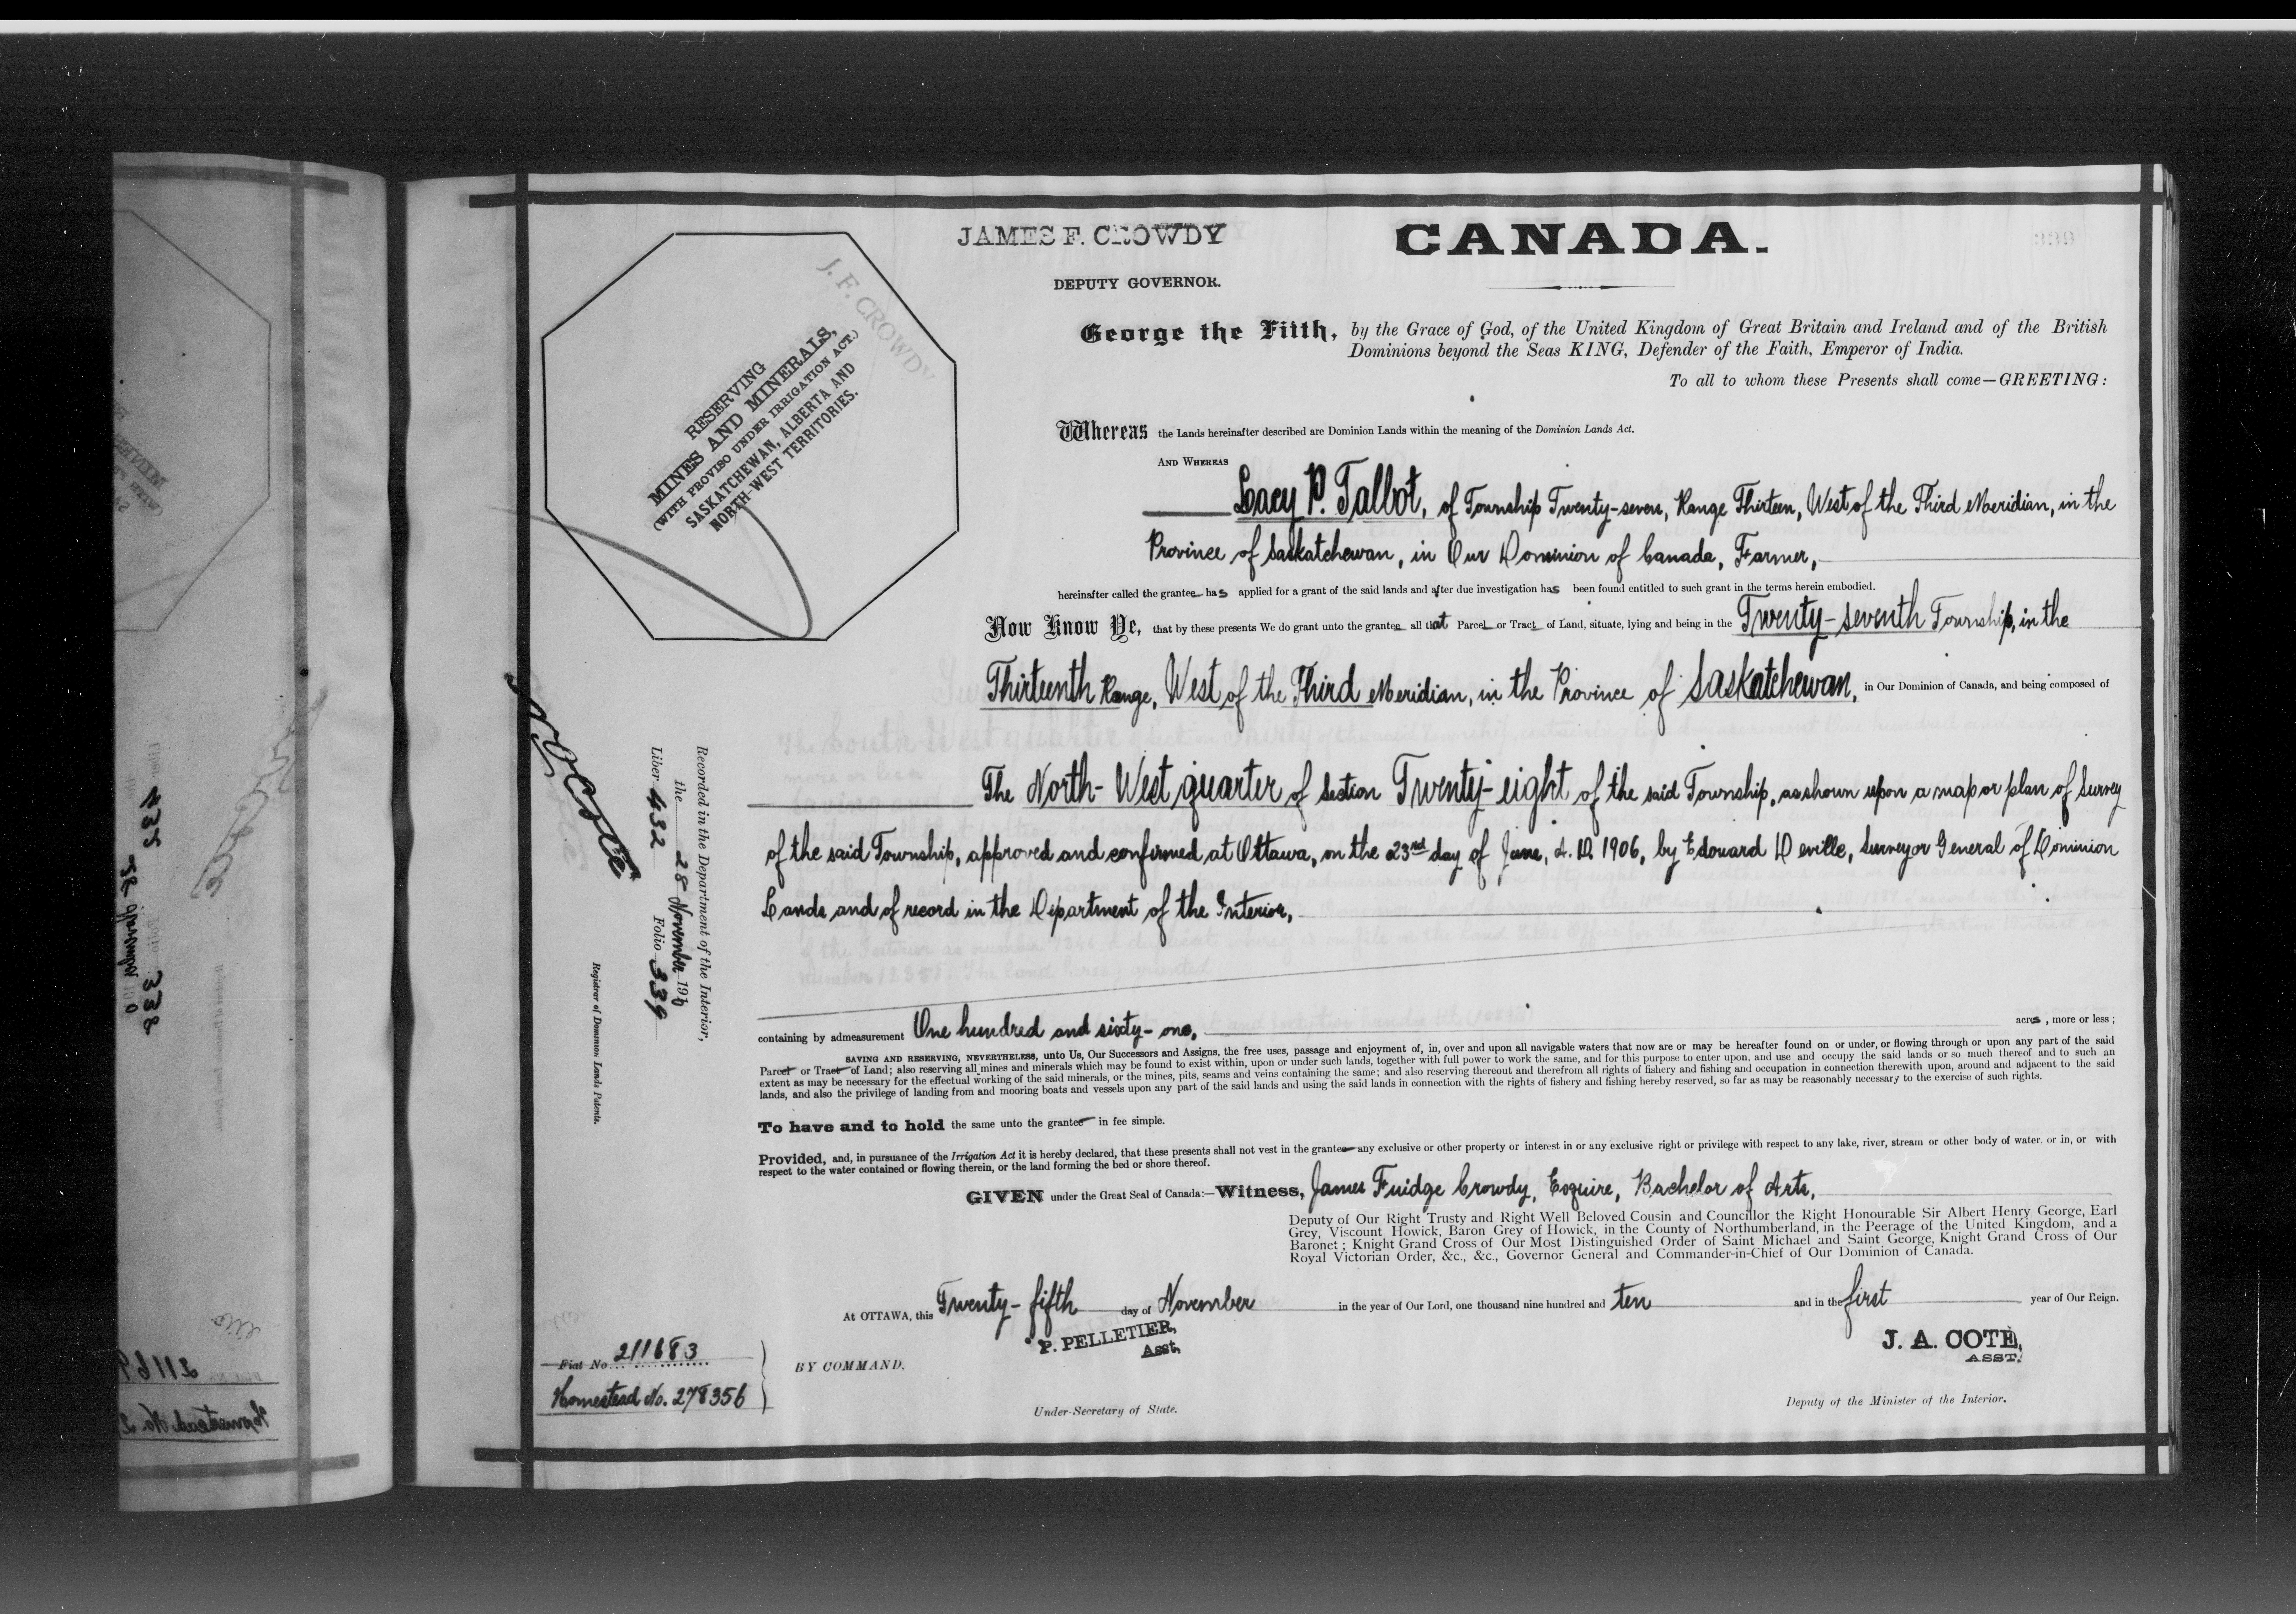 JAMES F. CROWDY
CANADA.
DEPUTY GOVERNOR.
J. F. CROWDY
RESERVING
MINES AND MINERALS,
(WITH PROVISO UNDER IRRIGATION ACT.)
SASKATCHEWAN, ALBERTA AND
NORTH-WEST TERRITORIES.
George the Fifth, by the Grace of God, of the United Kingdom of Great Britain and Ireland and of the British
Dominions beyond the Seas KING, Defender of the Faith, Emperor of India.
To all to whom these Presents shall come—GREETING:
Whereas the Lands hereinafter described are Dominion Lands within the meaning of the Dominion Lands Act.
AND WHEREAS
Lacy P. Talbot, of Township Twenty-seven, Range Thirteen, West of the Third Meridian, in the
Province of Saskatchewan, in Our Dominion of Canada, Farmer,
hereinafter called the grantee has applied for a grant of the said lands and after due investigation has been found entitled to such grant in the terms herein embodied.
Now Know Ye, that by these presents We do grant unto the grantee all that Parcel or Tract of Land, situate, lying and being in the Twenty-seventh Township, in the
Thirteenth Range, West of the Third Meridian, in the Province of Saskatchewan, in Our Dominion of Canada, and being composed of
The North-West quarter of Section Twenty-eight of the said Township, as shown upon a map or plan of Survey
of the said Township, approved and confirmed at Ottawa, on the 23rd day of June, A.D. 1906, by Edouard Deville, Surveyor General of Dominion
Lands and of record in the Department of the Interior,
containing by admeasurement One hundred and sixty-one, acres, more or less;
SAVING AND RESERVING, NEVERTHELESS, unto Us, Our Successors and Assigns, the free uses, passage and enjoyment of, in, over and upon all navigable waters that now are or may be hereafter found on or under, or flowing through or upon any part of the said
Parcel or Tract of Land; also reserving all mines and minerals which may be found to exist within, upon or under such lands, together with full power to work the same, and for this purpose to enter upon, and use and occupy the said lands or so much thereof and to such an
extent as may be necessary for the effectual working of the said minerals, or the mines, pits, seams and veins containing the same; and also reserving thereout and therefrom all rights of fishery and fishing and occupation in connection therewith upon, around and adjacent to the said
lands, and also the privilege of landing from and mooring boats and vessels upon any part of the said lands and using the said lands in connection with the rights of fishery and fishing hereby reserved, so far as may be reasonably necessary to the exercise of such rights.
To have and to hold the same unto the grantee in fee simple.
Provided, and, in pursuance of the Irrigation Act it is hereby declared, that these presents shall not vest in the grantee any exclusive or other property or interest in or any exclusive right or privilege with respect to any lake, river, stream or other body of water. or in, or with
respect to the water contained or flowing therein, or the land forming the bed or shore thereof.
GIVEN under the Great Seal of Canada:—Witness, James Fuidge Crowdy, Esquire, Bachelor of Arts,
Deputy of Our Right Trusty and Right Well Beloved Cousin and Councillor the Right Honourable Sir Albert Henry George, Earl
Grey, Viscount Howick, Baron Grey of Howick, in the County of Northumberland, in the Peerage of the United Kingdom, and a
Baronet; Knight Grand Cross of Our Most Distinguished Order of Saint Michael and Saint George, Knight Grand Cross of Our
Royal Victorian Order, &c., &c., Governor General and Commander-in-Chief of Our Dominion of Canada.
At OTTAWA, this Twenty-fifth day of November in the year of Our Lord, one thousand nine hundred and ten and in the first year of Our Reign.
P. PELLETIER,
Asst,
J. A. COTE,
ASST.
BY COMMAND,
Under-Secretary of State.
Deputy of the Minister of the Interior.
Fiat No. 211683
Homestead No. 278356
Recorded in the Department of the Interior,
the 28 November 1910
Liber 432 Folio 339
Registrar of Dominion Lands Patents.